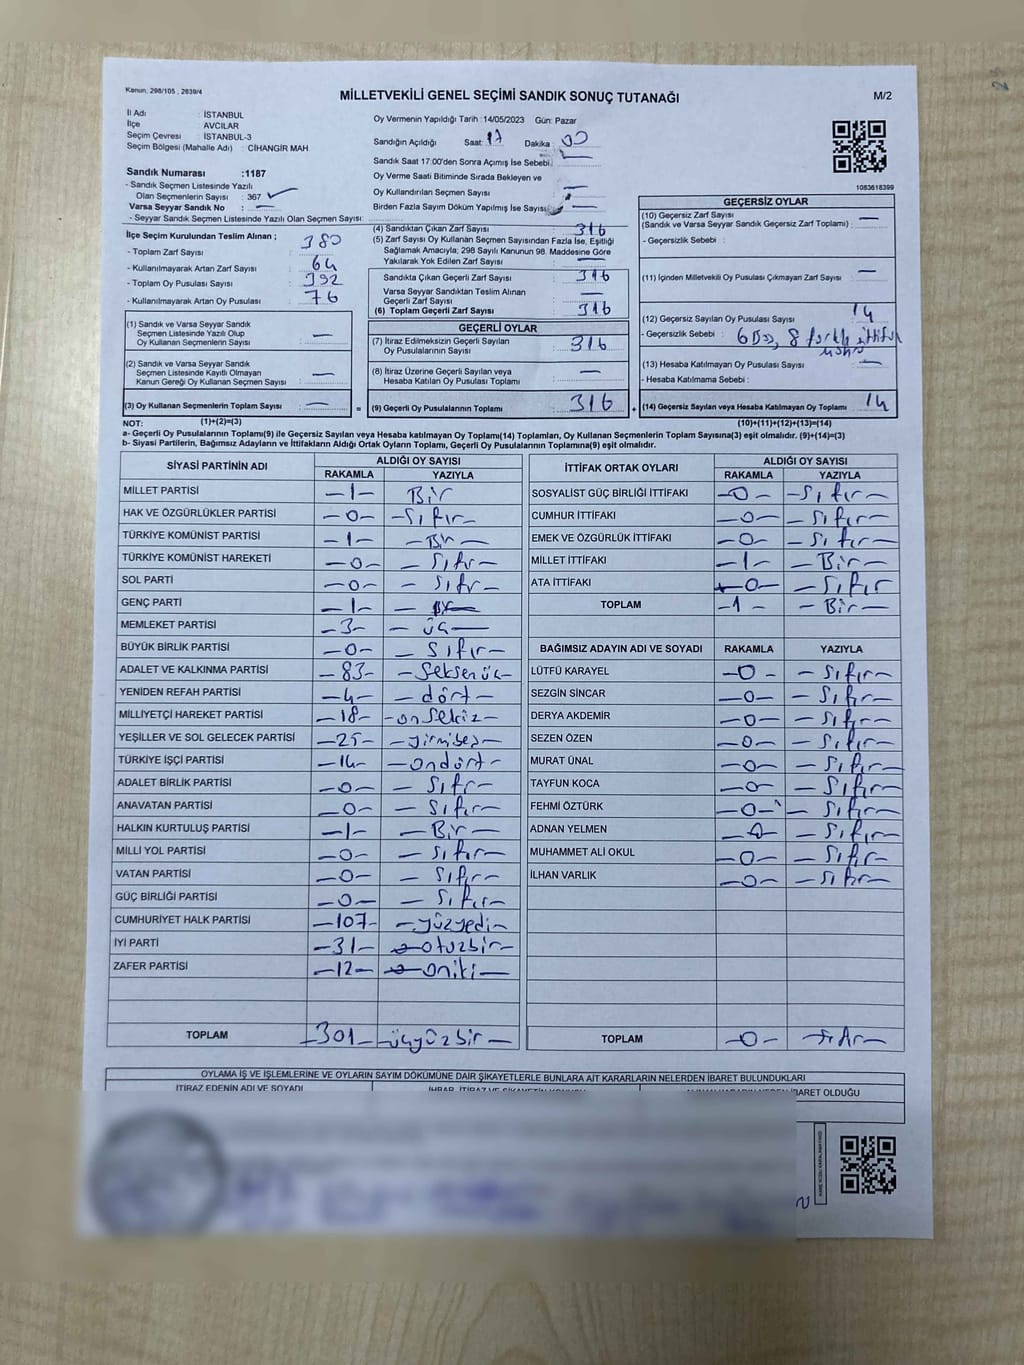 Kanun, 298/105 , 2839/4
MİLLETVEKİLİ GENEL SEÇİMİ SANDIK SONUÇ TUTANAĞI
M/2
İl Adı : İSTANBUL
İlçe : AVCILAR
Seçim Çevresi : İSTANBUL-3
Seçim Bölgesi (Mahalle Adı) : CİHANGİR MAH
Oy Vermenin Yapıldığı Tarih :14/05/2023 Gün: Pazar
Sandığın Açıldığı Saat: 17 Dakika : 00
Sandık Saat 17:00'den Sonra Açımış İse Sebebi: —
Oy Verme Saati Bitiminde Sırada Bekleyen ve
Oy Kullandırılan Seçmen Sayısı : —
Birden Fazla Sayım Döküm Yapılmış İse Sayısı: —
1083618399
Sandık Numarası :1187
- Sandık Seçmen Listesinde Yazılı
Olan Seçmenlerin Sayısı : 367
Varsa Seyyar Sandık No : —
- Seyyar Sandık Seçmen Listesinde Yazılı Olan Seçmen Sayısı:
İlçe Seçim Kurulundan Teslim Alınan ;
- Toplam Zarf Sayısı : 380
- Kullanılmayarak Artan Zarf Sayısı : 64
- Toplam Oy Pusulası Sayısı : 392
- Kullanılmayarak Artan Oy Pusulası : 76
(1) Sandık ve Varsa Seyyar Sandık
Seçmen Listesinde Yazılı Olup
Oy Kullanan Seçmenlerin Sayısı : —
(2) Sandık ve Varsa Seyyar Sandık
Seçmen Listesinde Kayıtlı Olmayan
Kanun Gereği Oy Kullanan Seçmen Sayısı : —
(3) Oy Kullanan Seçmenlerin Toplam Sayısı : —
(1)+(2)=(3)
(4) Sandıktan Çıkan Zarf Sayısı : 316
(5) Zarf Sayısı Oy Kullanan Seçmen Sayısından Fazla İse, Eşitliği
Sağlamak Amacıyla; 298 Sayılı Kanunun 98. Maddesine Göre
Yakılarak Yok Edilen Zarf Sayısı : —
Sandıkta Çıkan Geçerli Zarf Sayısı : 316
Varsa Seyyar Sandıktan Teslim Alınan
Geçerli Zarf Sayısı : —
(6) Toplam Geçerli Zarf Sayısı : 316
GEÇERLİ OYLAR
(7) İtiraz Edilmeksizin Geçerli Sayılan
Oy Pusulalarının Sayısı : 316
(8) İtiraz Üzerine Geçerli Sayılan veya
Hesaba Katılan Oy Pusulası Toplamı : —
= (9) Geçerli Oy Pusulalarının Toplamı : 316
GEÇERSİZ OYLAR
(10) Geçersiz Zarf Sayısı : —
(Sandık ve Varsa Seyyar Sandık Geçersiz Zarf Toplamı)
- Geçersizlik Sebebi :
(11) İçinden Milletvekili Oy Pusulası Çıkmayan Zarf Sayısı : —
(12) Geçersiz Sayılan Oy Pusulası Sayısı : 14
- Geçersizlik Sebebi : 6 Boş, 8 farklı ittifak
(13) Hesaba Katılmayan Oy Pusulası Sayısı : —
- Hesaba Katılmama Sebebi :
+ (14) Geçersiz Sayılan veya Hesaba Katılmayan Oy Toplamı : 14
(10)+(11)+(12)+(13)=(14)
NOT:
a- Geçerli Oy Pusulalarının Toplamı(9) ile Geçersiz Sayılan veya Hesaba katılmayan Oy Toplamı(14) Toplamları, Oy Kullanan Seçmenlerin Toplam Sayısına(3) eşit olmalıdır. (9)+(14)=(3)
b- Siyasi Partilerin, Bağımsız Adayların ve İttifakların Aldığı Ortak Oyların Toplamı, Geçerli Oy Pusulalarının Toplamına(9) eşit olmalıdır.
SİYASİ PARTİNİN ADI ALDIĞI OY SAYISI
RAKAMLA YAZIYLA
MİLLET PARTİSİ –1– Bir
HAK VE ÖZGÜRLÜKLER PARTİSİ –0– –Sıfır–
TÜRKİYE KOMÜNİST PARTİSİ –1– –Bir–
TÜRKİYE KOMÜNİST HAREKETİ –0– –Sıfır–
SOL PARTİ –0– –Sıfır
GENÇ PARTİ –1–
MEMLEKET PARTİSİ –3– –üç–
BÜYÜK BİRLİK PARTİSİ –0– –Sıfır–
ADALET VE KALKINMA PARTİSİ –83– –Seksenüç–
YENİDEN REFAH PARTİSİ –4– –dört–
MİLLİYETÇİ HAREKET PARTİSİ –18– –onsekiz–
YEŞİLLER VE SOL GELECEK PARTİSİ –25– –yirmibeş–
TÜRKİYE İŞÇİ PARTİSİ –14– –ondört–
ADALET BİRLİK PARTİSİ –0– –Sıfır–
ANAVATAN PARTİSİ –0– –Sıfır–
HALKIN KURTULUŞ PARTİSİ –1– –Bir–
MİLLİ YOL PARTİSİ –0– –Sıfır–
VATAN PARTİSİ –0– –Sıfır–
GÜÇ BİRLİĞİ PARTİSİ –0– –Sıfır–
CUMHURİYET HALK PARTİSİ –107– –yüzyedi–
İYİ PARTİ –31– –otuzbir–
ZAFER PARTİSİ –12– –oniki–
TOPLAM –301– –üçyüzbir–
İTTİFAK ORTAK OYLARI ALDIĞI OY SAYISI
RAKAMLA YAZIYLA
SOSYALİST GÜÇ BİRLİĞİ İTTİFAKI –0– –Sıfır–
CUMHUR İTTİFAKI –0– –Sıfır–
EMEK VE ÖZGÜRLÜK İTTİFAKI –0– –Sıfır–
MİLLET İTTİFAKI –1– –Bir–
ATA İTTİFAKI –0– –Sıfır
TOPLAM –1– –Bir–
BAĞIMSIZ ADAYIN ADI VE SOYADI RAKAMLA YAZIYLA
LÜTFÜ KARAYEL –0– –Sıfır–
SEZGİN SİNCAR –0– –Sıfır–
DERYA AKDEMİR –0– –Sıfır–
SEZEN ÖZEN –0– –Sıfır–
MURAT ÜNAL –0– –Sıfır–
TAYFUN KOCA –0– –Sıfır–
FEHMİ ÖZTÜRK –0– –Sıfır–
ADNAN YELMEN –0– –Sıfır–
MUHAMMET ALİ OKUL –0– –Sıfır–
İLHAN VARLIK –0– –Sıfır–
TOPLAM –0– –Sıfır–
OYLAMA İŞ VE İŞLEMLERİNE VE OYLARIN SAYIM DÖKÜMÜNE DAİR ŞİKAYETLERLE BUNLARA AİT KARARLARIN NELERDEN İBARET BULUNDUKLARI
İTİRAZ EDENİN ADI VE SOYADI
İBARET OLDUĞU